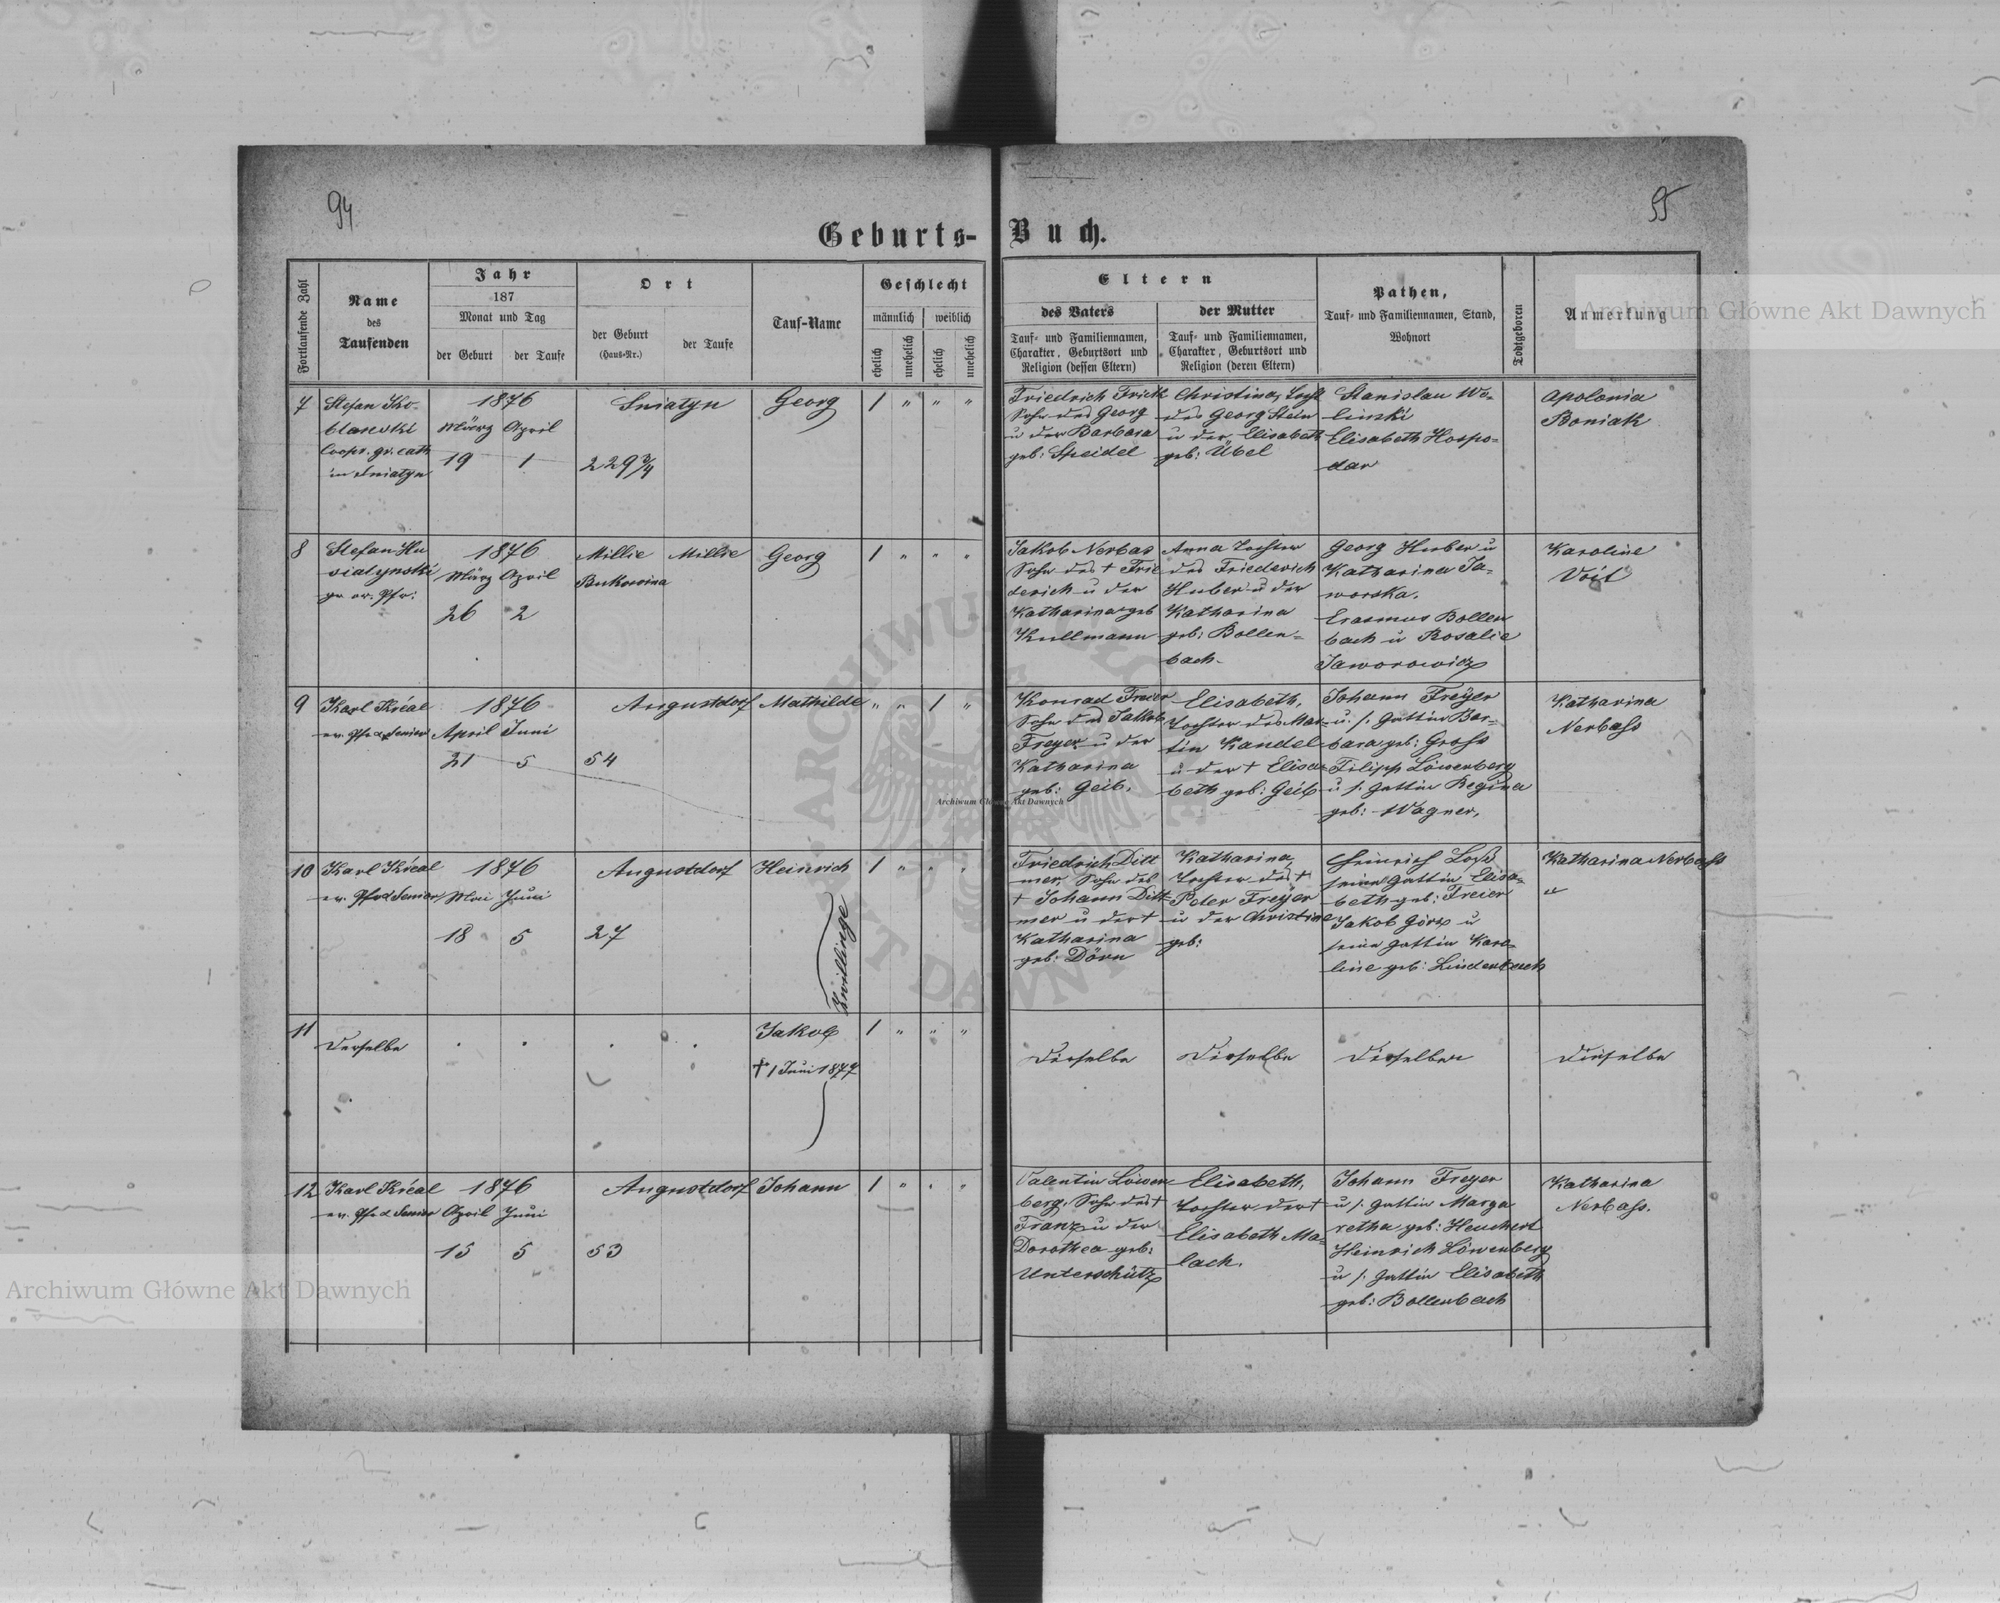 94
55
Geburts-Buch.
Fortlaufende Zahl
Name
des
Taufenden
Jahr
187
Monat und Tag
der Geburt
der Taufe
Ort
der Geburt
(Haus-Nr.)
der Taufe
Tauf-Name
Geschlecht
männlich
weiblich
ehelich
unehelich
ehelich
unehelich
Eltern
des Vaters
Tauf- und Familiennamen,
Charakter, Geburtsort und
Religion (dessen Eltern)
der Mutter
Tauf- und Familiennamen,
Charakter, Geburtsort und
Religion (deren Eltern)
Pathen,
Tauf- und Familiennamen, Stand,
Wohnort
Todtgeboren
Anmerkung
7
Stefan Ko-
blanski
Coopr. gr. cath
in Sniatyn
1876
März April
19 1
Sniatyn
229 3/4
Georg
1 " " "
Friedrich Frick
Sohn des Georg
u der Barbara
geb: Speidel
Christina, Tocht
des Georg Stein
u der Elisabeth
geb: Übel
Stanislau Wo-
linski
Elisabeth Hospo-
dar
Apolonia
Boniak
8
Stefan Hu
siatynski
gr or. Pfr:
1876
März April
26 2
Millie Millie
Bukowina
Georg
1 " " "
Jakob Nerbas
Sohn des † Frie
derich u der
Katharina geb
Kullmann
Anna Tochter
des Friederich
Huber u der
Katharina
geb: Bollen-
bach.
Georg Huber u
Katharina Ja-
worska.
Erasmus Bollen
bach u Rosalie
Jaworowicz
Karoline
Voit
9
Karl Kréal
ev. Pfr & Senior
1876
April Juni
21 5
Augustdorf
54
Mathilde
" " 1 "
Konrad Freier
Sohn des Jakob
Freyer u der
Katharina
geb: Geib.
Elisabeth,
Tochter des Mar-
tin Kandel
u der † Elisa-
beth geb: Geib
Johann Freÿer
u. s. Gattin Bar-
bara geb: Gross
Filipp Löwenberg
u s. Gattin Regina
geb: Wagner.
Katharina
Nerbass
10
Karl Kréal
ev. Pfr & Senior
1876
Mai Juni
18 5
Augustdorf
27
Heinrich
Zwillinge
1 " " "
Friedrich Ditt
mer, Sohn des
† Johann Ditt
mer u der †
Katharina
geb: Dörn
Katharina,
Tochter des †
Peter Freÿer
u der Christine
geb:
Heinrich
seine Gattin Elisa-
beth geb: Freier
Jakob Görz u
seine Gattin Karo-
line geb: Lindenbach
Katharina Nerbass
"
11
Derselbe
Jakob
† 1 Juni 1877
1 " " "
Dieselbe
Dieselbe
Dieselben
Dieselbe
12
Karl Kréal
ev. Pfr & Senior
1876
April Juni
15 5
Augustdorf
53
Johann
1 " " "
Valentin Löwen
berg, Sohn des †
Franz u der
Dorothea geb:
Unterschütz
Elisabeth,
Tochter der †
Elisabeth Ma-
lach.
Johann Freyer
u s. Gattin Marga
retha geb: Heuchert
Heinrich Löwenberg
u s. Gattin Elisabeth
geb: Bollenbach
Katharina
Nerbass.
Archiwum Główne Akt Dawnych
Archiwum Główne Akt Dawnych
Archiwum Główne Akt Dawnych